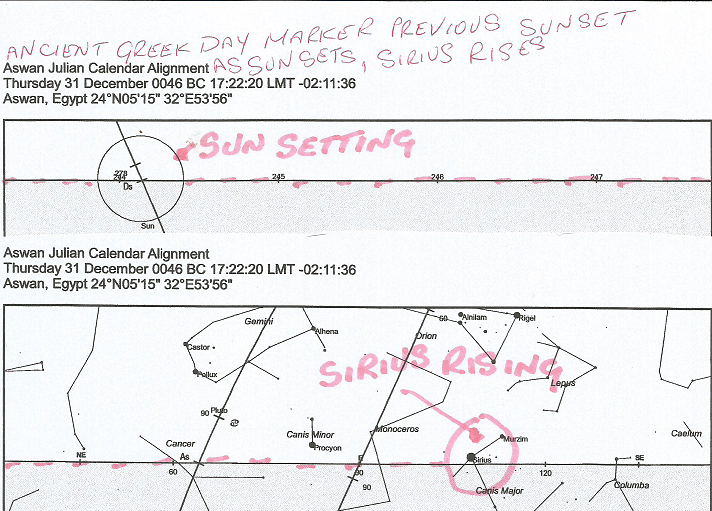 ANCIENT GREEK DAY MARKER PREVIOUS SUNSET
AS SUNSETS, SIRIUS RISES
Aswan Julian Calendar Alignment
Thursday 31 December 0046 BC 17:22:20 LMT -02:11:36
Aswan, Egypt 24°N05'15" 32°E53'56"
SUN SETTING
278
244
245
246
247
Ds
Sun
Aswan Julian Calendar Alignment
Thursday 31 December 0046 BC 17:22:20 LMT -02:11:36
Aswan, Egypt 24°N05'15" 32°E53'56"
Gemini
Alhena
60
Alnilam
Rigel
Orion
Castor
Pollux
SIRIUS RISING
Lepus
90
Pluto
Cancer
Canis Minor
Procyon
Monoceros
Murzim
Caelum
NE
As
E
Sirius
SE
60
90
120
90
Canis Major
Columba